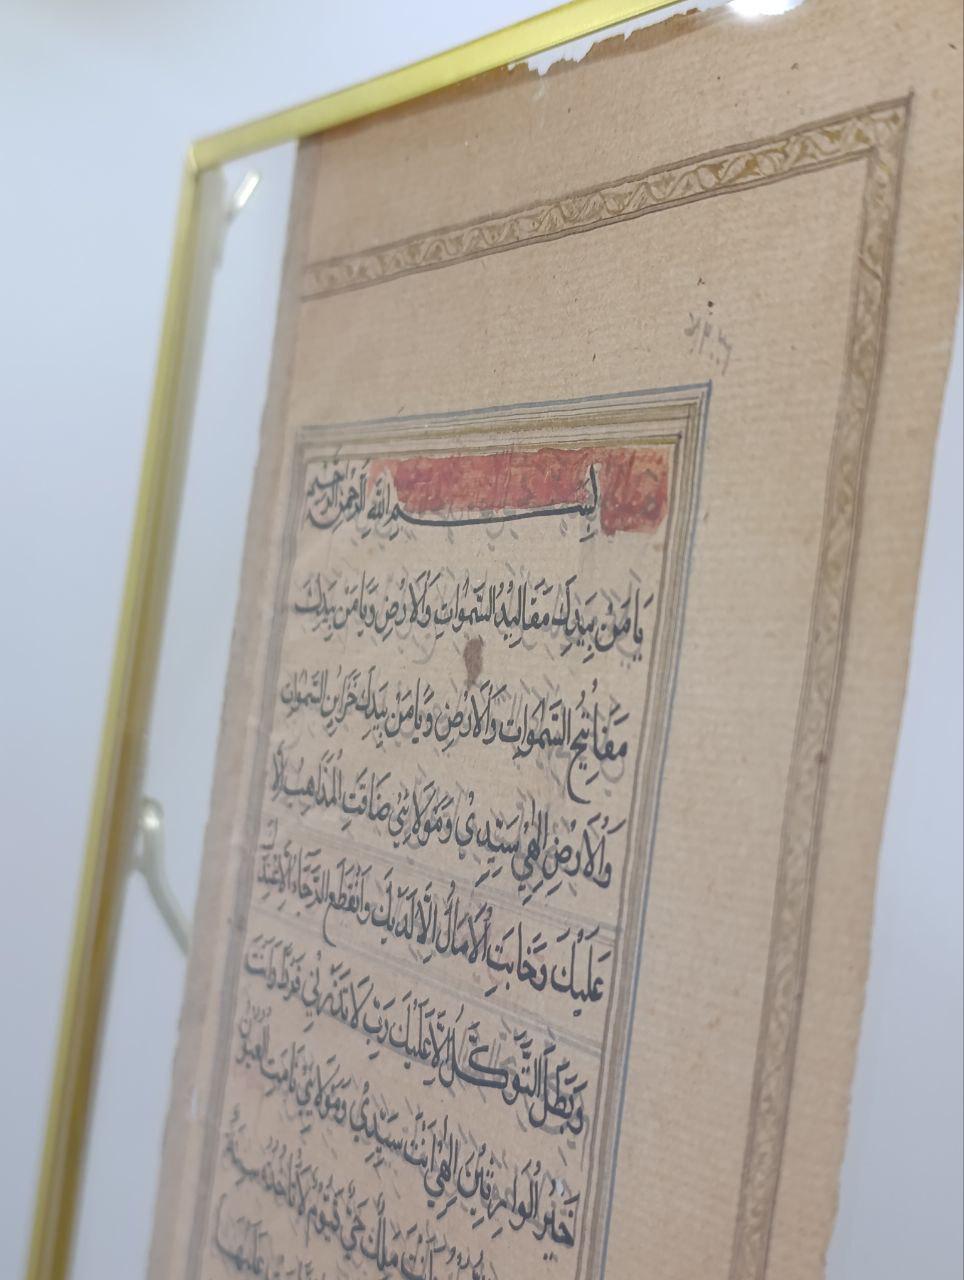 بِسْمِ اللّٰهِ الرَّحْمٰنِ الرَّحِيْمِ
يَا مَنْ بِيَدِكَ مَقَالِيْدُ السَّمٰوَاتِ وَالْاَرْضِ وَيَا مَنْ بِيَدِكَ
مَفَاتِيْحُ السَّمٰوَاتِ وَالْاَرْضِ وَيَا مَنْ بِيَدِكَ خَزَايِنُ السَّمٰوَاتِ
وَالْاَرْضِ اِلٰهِيْ سَيِّدِيْ وَمَوْلَائِيْ ضَاقَتِ الْمَذَاهِبُ اِلَّا
عَلَيْكَ وَخَابَتِ الْاٰمَالُ اِلَّا لَدَيْكَ وَانْقَطَعَ الرَّجَاءُ اِلَّا عِنْدَكَ
وَبَطَلَ التَّوَكُّلُ اِلَّا عَلَيْكَ رَبِّ لَا تَذَرْنِيْ فَرْدًا وَاَنْتَ
خَيْرُ الْوَارِثِيْنَ اِلٰهِيْ اَنْتَ سَيِّدِيْ وَمَوْلَائِيْ نَامَتِ الْعُيُوْنُ
وَاَنْتَ مَلِكٌ حَيٌّ قَيُّوْمٌ لَا تَاْخُذُهُ سِنَةٌ
عَلَيْهَا